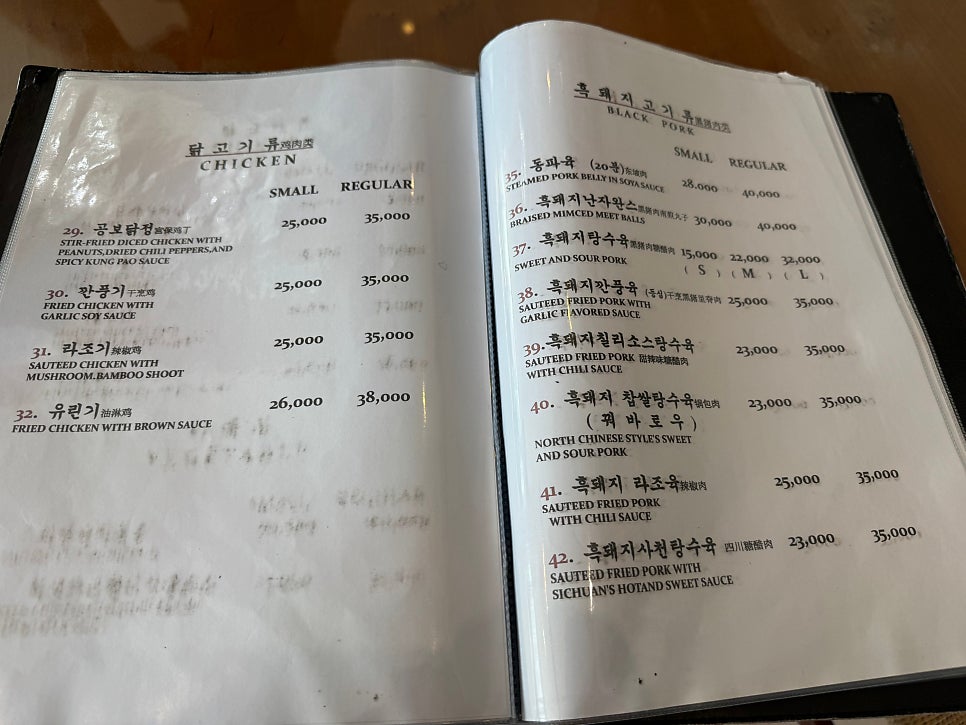 닭고기류鸡肉类
CHICKEN
SMALL REGULAR
29. 공보닭정宫保鸡丁 25,000 35,000
STIR-FRIED DICED CHICKEN WITH
PEANUTS,DRIED CHILI PEPPERS,AND
SPICY KUNG PAO SAUCE
30. 깐풍기干烹鸡 25,000 35,000
FRIED CHICKEN WITH
GARLIC SOY SAUCE
31. 라조기辣椒鸡 25,000 35,000
SAUTEED CHICKEN WITH
MUSHROOM.BAMBOO SHOOT
32. 유린기油淋鸡 26,000 38,000
FRIED CHICKEN WITH BROWN SAUCE
흑돼지고기류黑猪肉类
BLACK PORK
SMALL REGULAR
35. 동파육 (20분)东坡肉 28.000 40,000
STEAMED PORK BELLY IN SOYA SAUCE
36. 흑돼지난자완스黑猪肉南煎丸子 30,000 40,000
BRAISED MIMCED MEET BALLS
37. 흑돼지탕수육黑猪肉糖醋肉 15,000 22,000 32,000
SWEET AND SOUR PORK (S) (M) (L)
38. 흑돼지깐풍육 (등심)干烹黑猪里脊肉 25,000 35,000
SAUTEED FRIED PORK WITH
GARLIC FLAVORED SAUCE
39. 흑돼지칠리소스탕수육 23,000 35,000
SAUTEED FRIED PORK 甜辣味糖醋肉
WITH CHILI SAUCE
40. 흑돼지 찹쌀탕수육锅包肉 23,000 35,000
(꿔바로우)
NORTH CHINESE STYLE'S SWEET
AND SOUR PORK
41. 흑돼지 라조육辣椒肉 25,000 35,000
SAUTEED FRIED PORK
WITH CHILI SAUCE
42. 흑돼지사천탕수육 四川糖醋肉 23,000 35,000
SAUTEED FRIED PORK WITH
SICHUAN'S HOTAND SWEET SAUCE